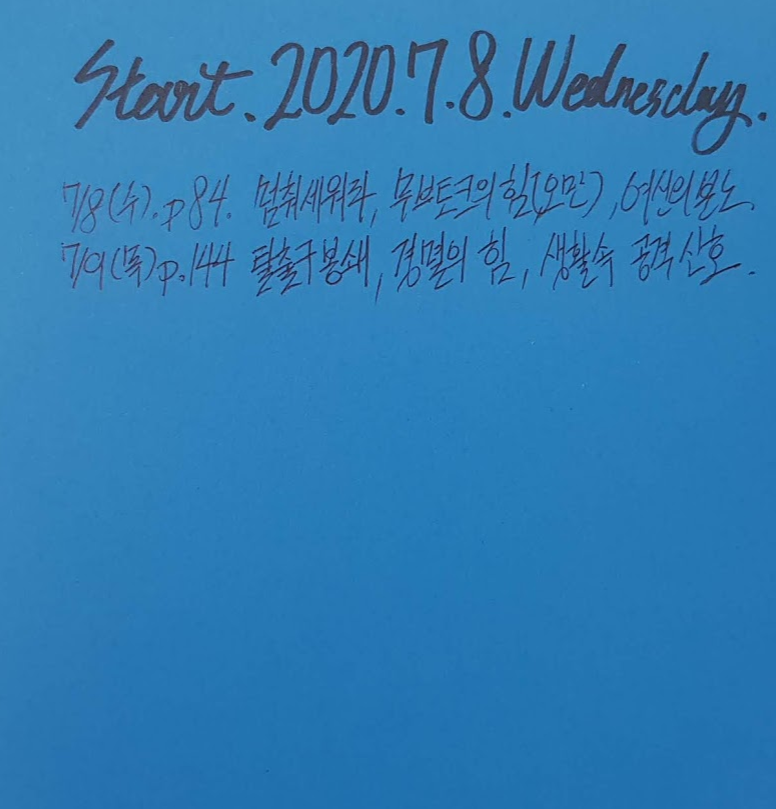 Start. 2020.7.8. Wednesday.
7/8(수). p84. 멈춰세워라, 무브토크의 힘(오만), 여신의 분노.
7/9(목) p.144 탈출구 봉쇄, 경멸의 힘, 생활속 공격 신호.